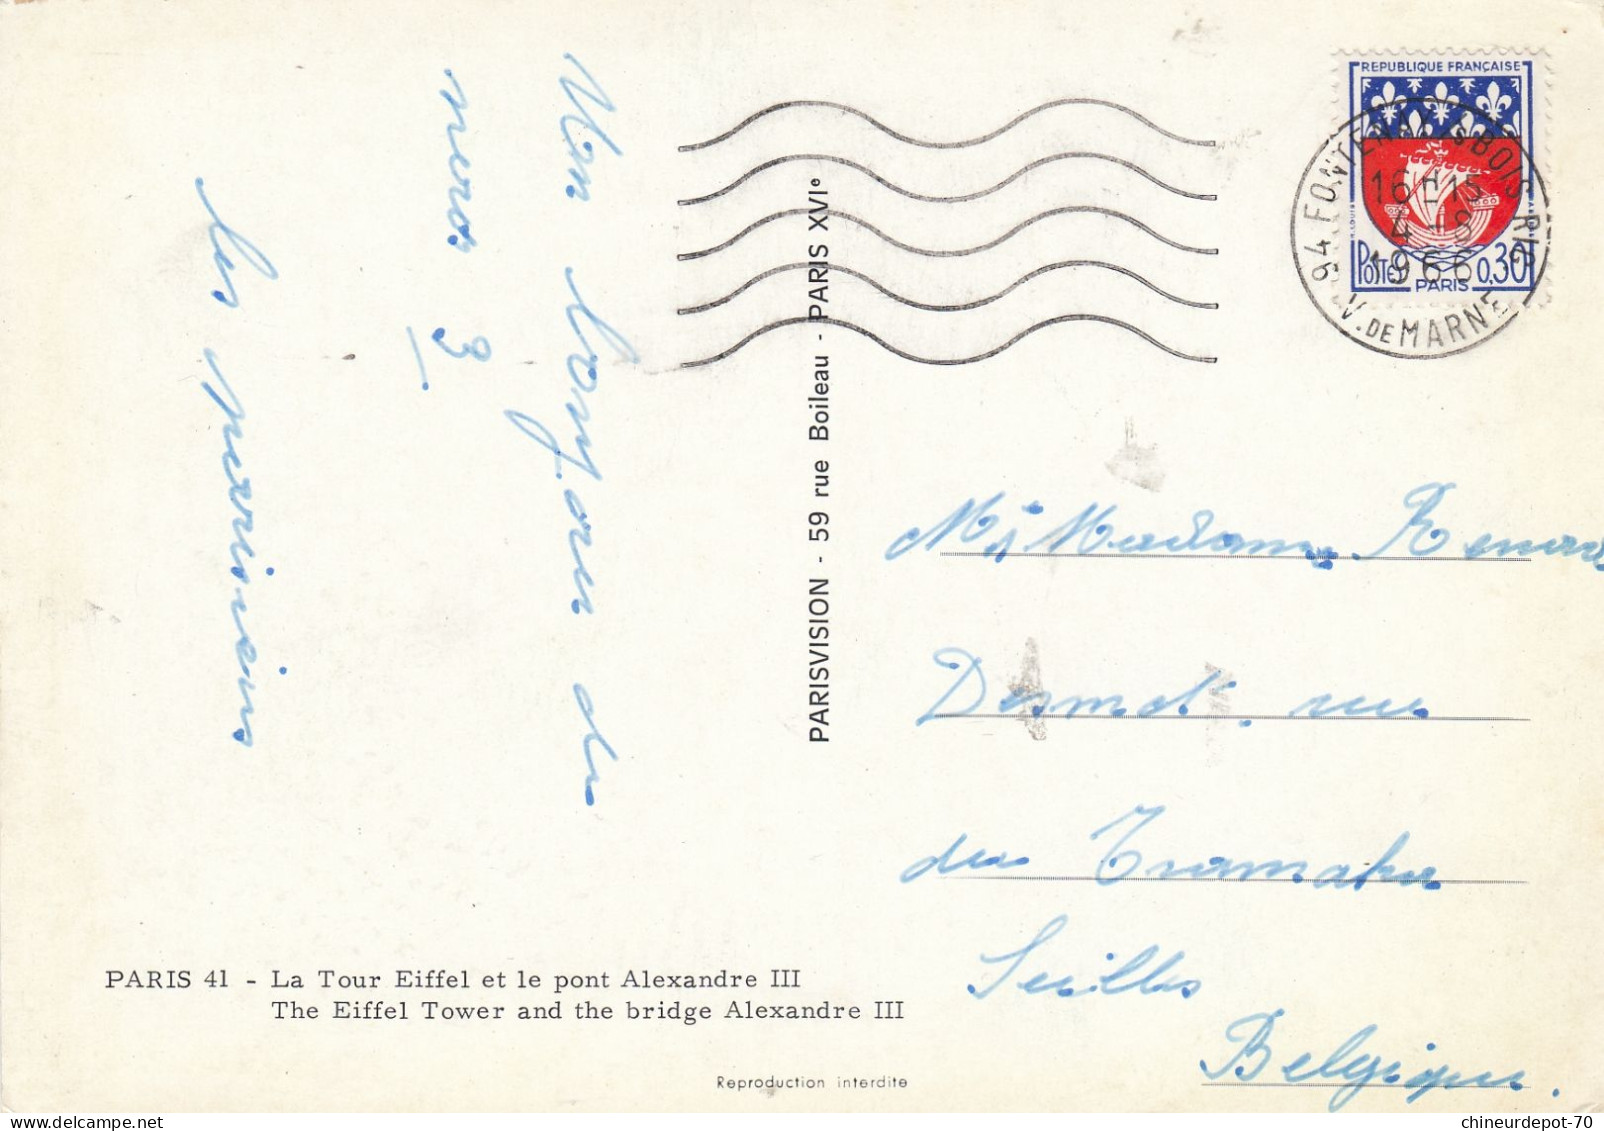 Un bonjour du
meros 3.
les merisiens
PARISVISION - 59 rue Boileau - PARIS XVIᵉ
REPUBLIQUE FRANÇAISE
POSTES 0,30
PARIS
94 FONTENAY s BOIS RIG
V. DE MARNE
16H15
4-8
1966
M Madame Renard
Desmet, rue
du
Seilles
Belgique.
PARIS 41 - La Tour Eiffel et le pont Alexandre III
The Eiffel Tower and the bridge Alexandre III
Reproduction interdite
chineurdepot-70